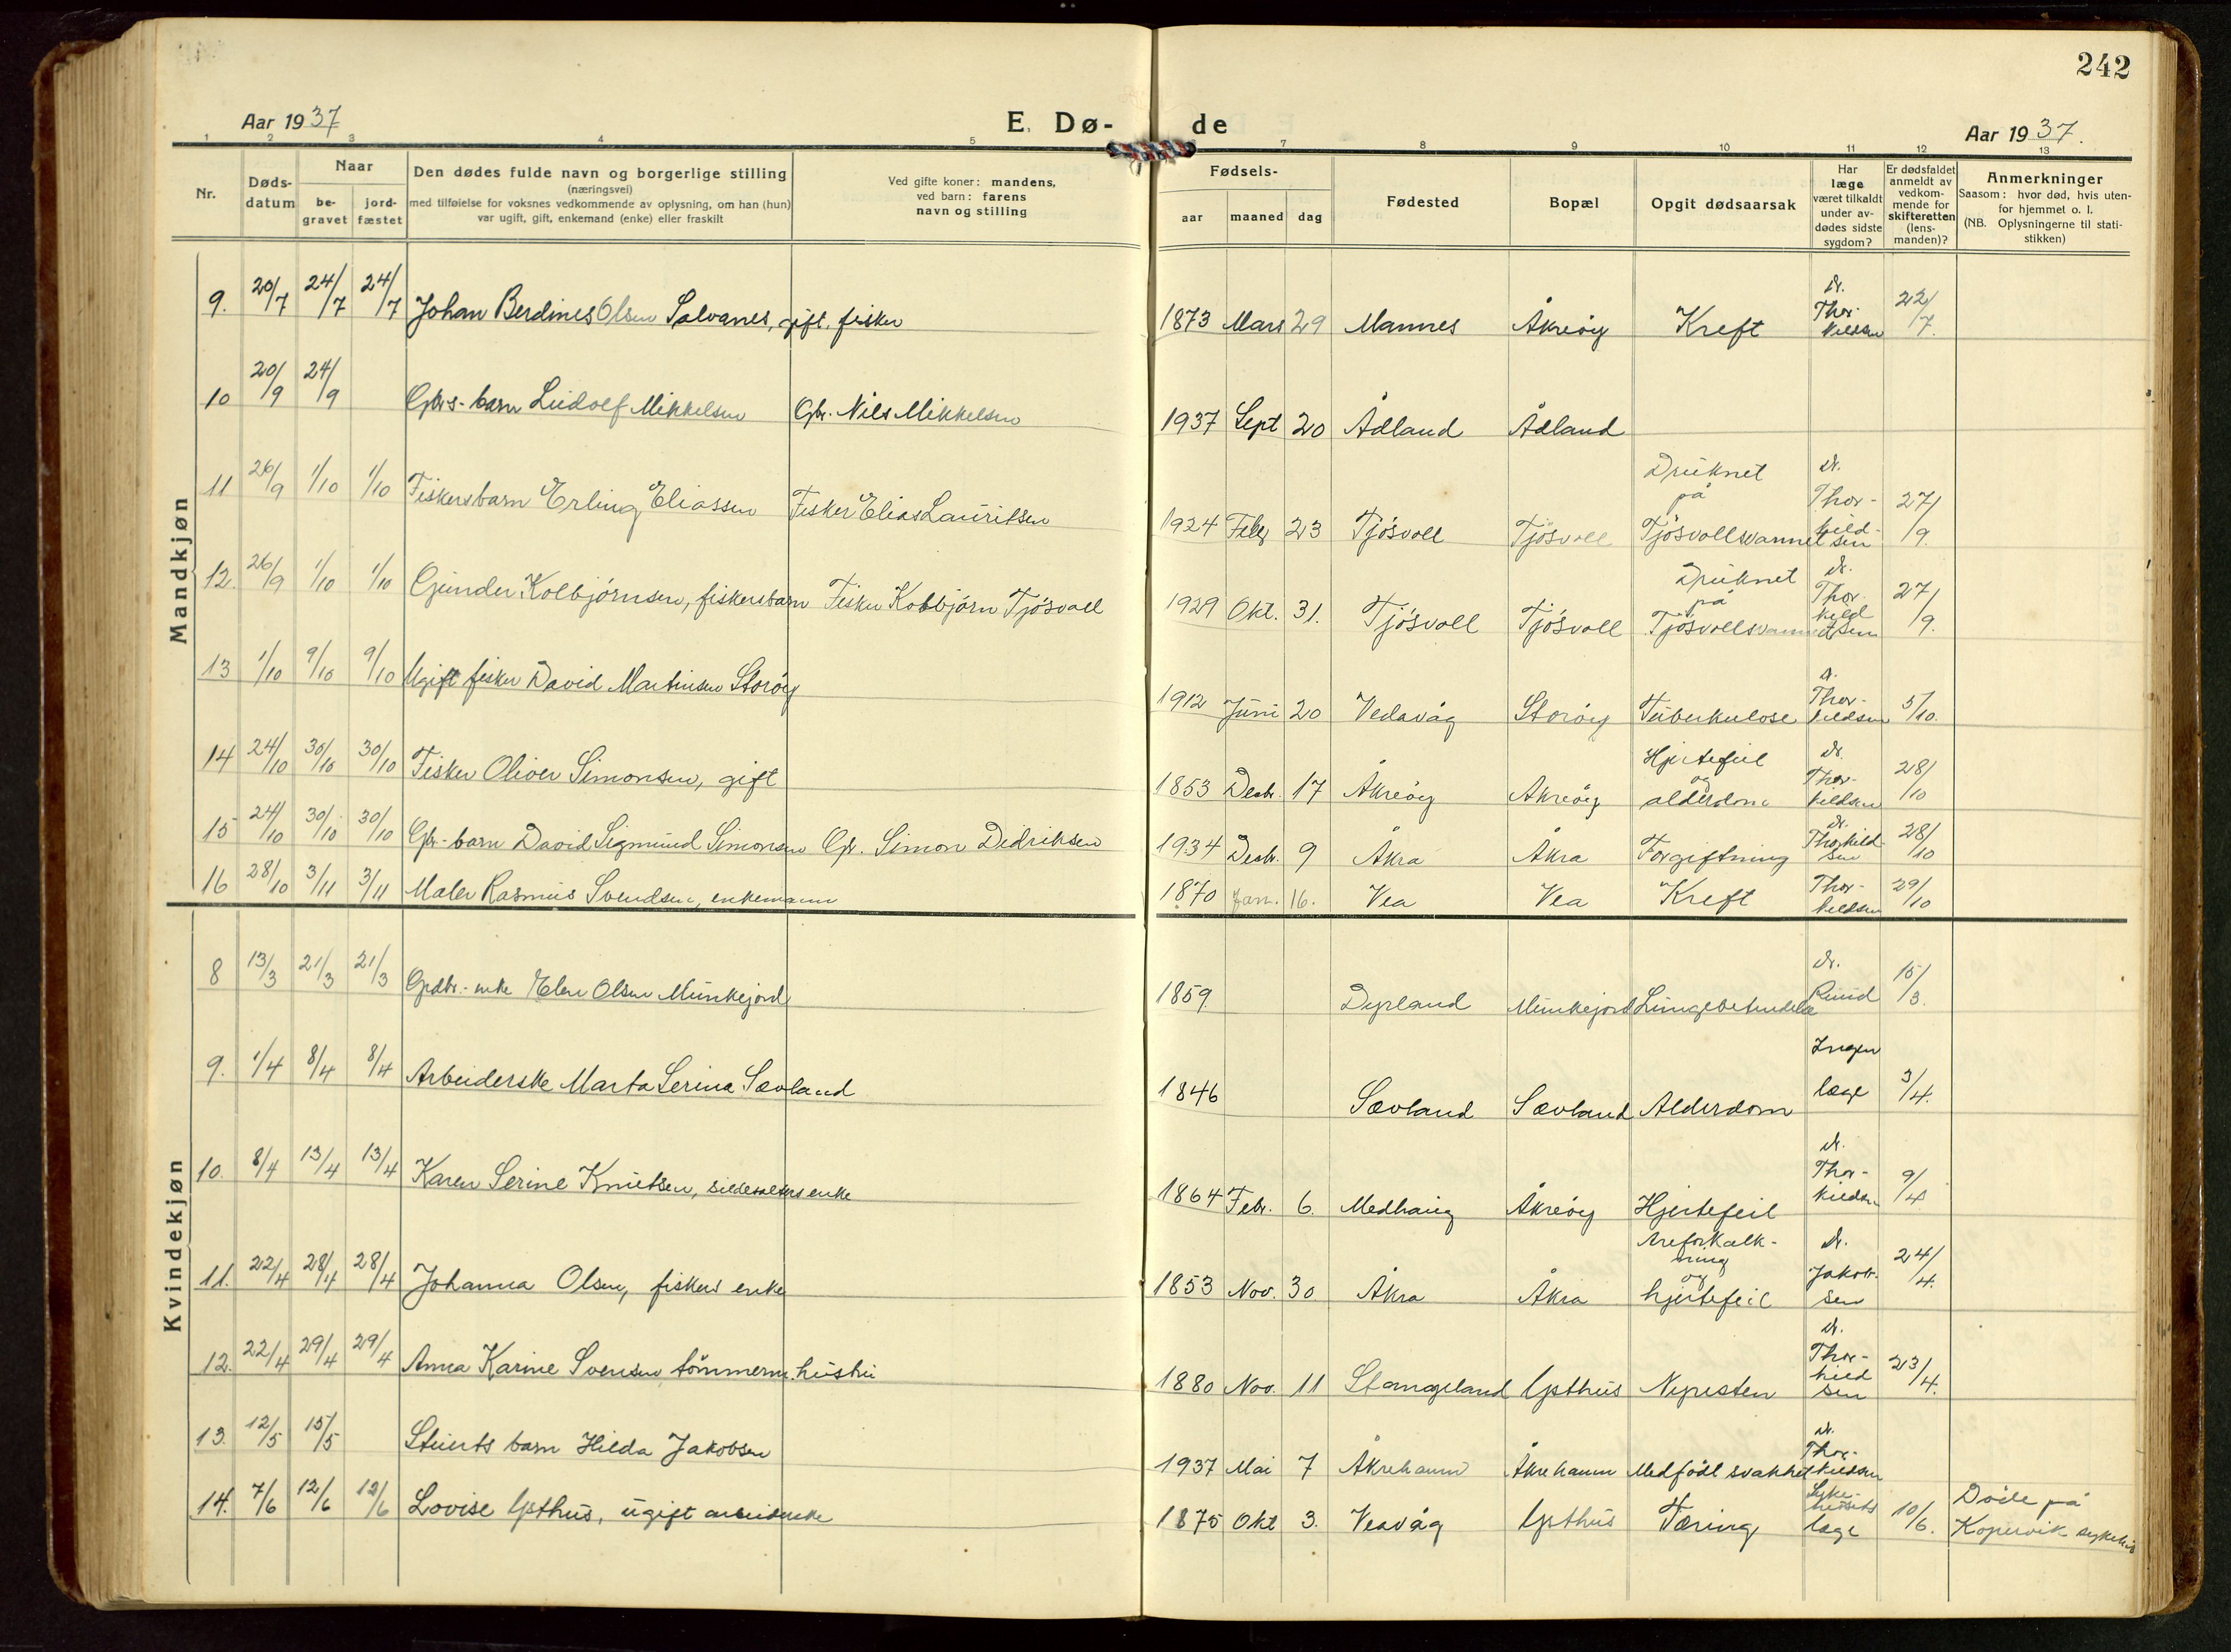 242
Aar 1937
E. Dø-
de
Aar 1937.
1 2 3 4 5 7 8 9 10 11 12 13
Nr.
Døds-
datum
Naar
be-
gravet
jord-
fæstet
Den dødes fulde navn og borgerlige stilling
(næringsvei)
med tilføielse for voksnes vedkommende av oplysning, om han (hun)
var ugift, gift, enkemand (enke) eller fraskilt
Ved gifte koner: mandens,
ved barn: farens
navn og stilling
Fødsels-
aar maaned dag
Fødested
Bopæl
Opgit dødsaarsak
Har
læge
været tilkaldt
under av-
dødes sidste
sygdom?
Er dødsfaldet
anmeldt av
vedkom-
mende for
skifteretten
(lens-
manden)?
Anmerkninger
Saasom: hvor død, hvis uten-
for hjemmet o. l.
(NB. Oplysningerne til stati-
stikken)
Mandkjøn
9. 20/7 24/7 24/7 Johan Berdines Olsen Salvanes, gift. fisker 1873 Mars 29 Mannes Åkreøy Kreft Dr. Thorkildsen 22/7.
10 20/9 24/9 Gbrs-barn Ludolf Mikkelsen Gbr. Nils Mikkelsen 1937 Sept 20 Ådland Ådland
11 26/9 1/10 1/10 Fiskersbarn Erling Eliassen Fisker Elias Lauritsen 1924 Febr 23 Tjøsvoll Tjøsvoll Druknet på Tjøsvollsvannet Dr. Thorkildsen 27/9.
12. 26/9 1/10 1/10 Gunder Kolbjørnsen, fiskersbarn Fisker Kolbjørn Tjøsvoll 1929 Okt. 31. Tjøsvoll Tjøsvoll Druknet på Tjøsvollsvannet Dr. Thorkildsen 27/9.
13 1/10 9/10 9/10 Ugift fisker David Martinsen Storøy 1912 Juni 20 Vedavåg Storøy Tuberkulose Dr. Thorkildsen 5/10.
14 24/10 30/10 30/10 Fisker Oliver Simonsen, gift 1853 Desbr. 17 Åkreøy Åkreøy Hjertefeil og alderdom Dr. Thorkildsen 28/10
15 24/10 30/10 30/10 Gbr-barn David Sigmund Simonsen Gbr. Simon Didriksen 1934 Desbr. 9 Åkra Åkra Forgiftning Dr. Thorkildsen 28/10
16 28/10 3/11 3/11 Maler Rasmus Svendsen, enkemann 1870 Jan. 16. Vea Vea Kreft Thorkildsen 29/10
Kvindekjøn
8 13/3 21/3 21/3 Grdbr.-enke Elen Olsen Munkejord 1859. Dyrland Munkejord Lungebetendelse Dr. Ruud 15/3.
9. 1/4 8/4 8/4 Arbeiderske Marta Serina Sævland 1846 Sævland Sævland Alderdom Ingen læge 3/4.
10. 8/4 13/4 13/4 Karen Serine Knutsen, sildesalters enke 1864 Febr. 6. Medhaug Åkreøy Hjertefeil Dr. Thorkildsen 9/4
11. 22/4 28/4 28/4 Johanna Olsen, fiskers enke 1853 Nov. 30 Åkra Åkra Åreforkalkning og hjertefeil Dr. Jakobsen 24/4.
12. 22/4 29/4 29/4 Anna Karine Svensen tømmerm. hustru 1880 Nov. 11 Stangeland Østhus Nyresten Dr. Thorkildsen 23/4.
13. 12/5 15/5 Stuerts barn Hilda Jakobsen 1937 Mai 7 Åkrehamn Åkrehamn Medfødt svakhet Dr. Thorkildsen
14. 7/6 12/6 12/6 Lovise Østhus, ugift arbeiderske 1875 Okt 3. Veavåg Østhus Tæring Sykehusets læge 10/6. Døde på Kopervik sykehus